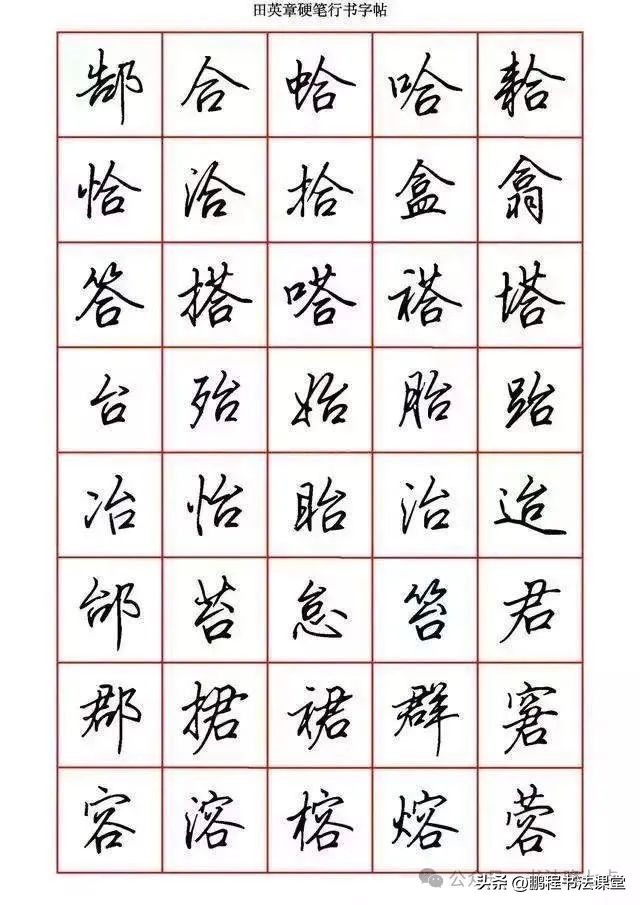 田英章硬笔行书字帖
郜 合 蛤 哈 耠
恰 洽 拾 盒 翕
答 搭 嗒 褡 塔
台 殆 始 胎 跆
冶 怡 眙 治 迨
邰 苔 怠 笞 君
郡 捃 裙 群 窘
容 溶 榕 熔 蓉
公众号
头条 @鹏程书法课堂